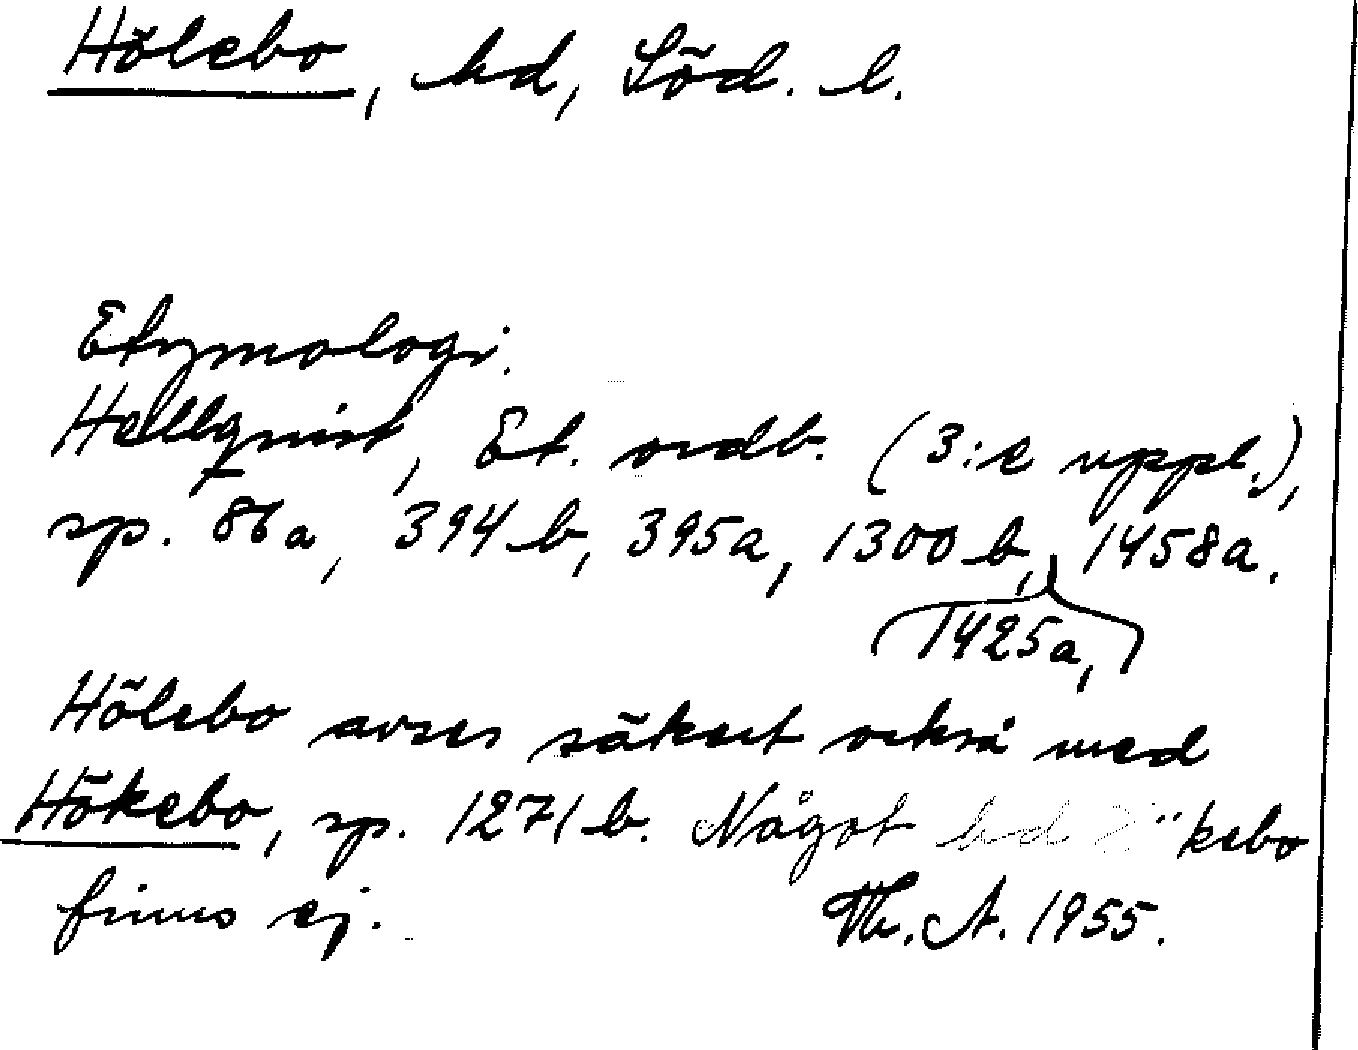 Hölebo, hd, Söd. l.
Etymologi.
Hellquist, Et. ordb. (3:e uppl.),
sp. 86a, 394b, 395a, 1300b, 1458a.
1425a,
Hölebo avses säkert också med
Hökebo, sp. 1271b. Något hd Hökebo
finns ej. Th. A. 1955.